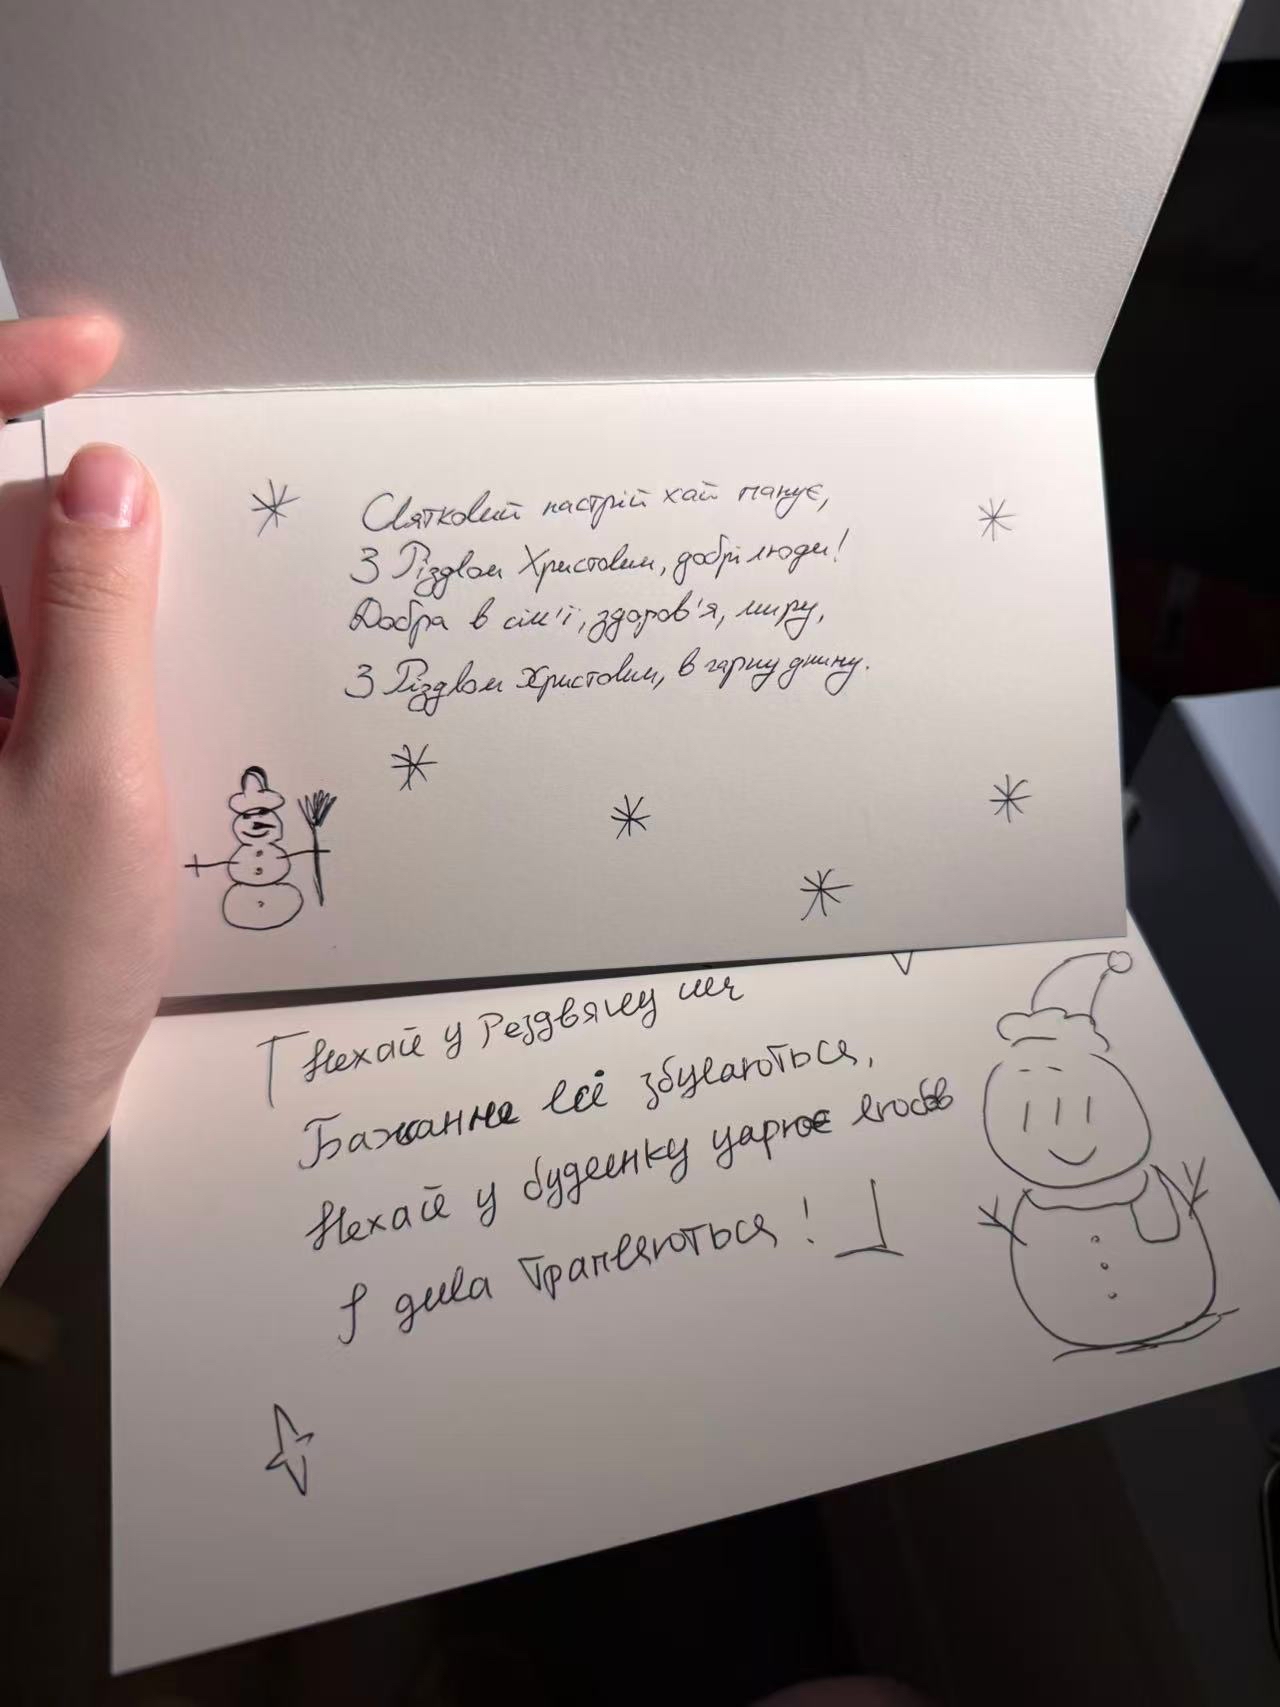 Святковий настрій хай панує,
З Різдвом Христовим, добрі люди!
Добра в сім'ї, здоров'я, миру,
З Різдвом Христовим, в гарну днину.
Нехай у Різдвяну ніч
Бажання всі збуваються,
Нехай у будинку царює любов
І дива трапляються!